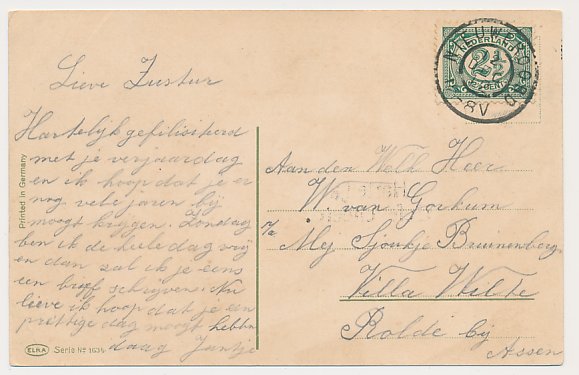 Lieve Zuster
Hartelijk gefilisiterd
met je verjaardag
en ik hoop dat je er
nog vele jaren bij
moogt krygen. Zondag
ben ik de heele dag vrij
en dan zal ik je eens
een brief schrijven. Nu
lieve ik hoop dat je een
prettige dag moogt hebben
daag Jantje
Printed in Germany
ELRA Serie No 1634
NEDERLAND
2½
CENT
NIEUWEROORD
Aan den Welk Heer
W van Gorkum
p/a
Mej Sjoukje Bruinenberg
Villa Welte
Rolde bij
Assen